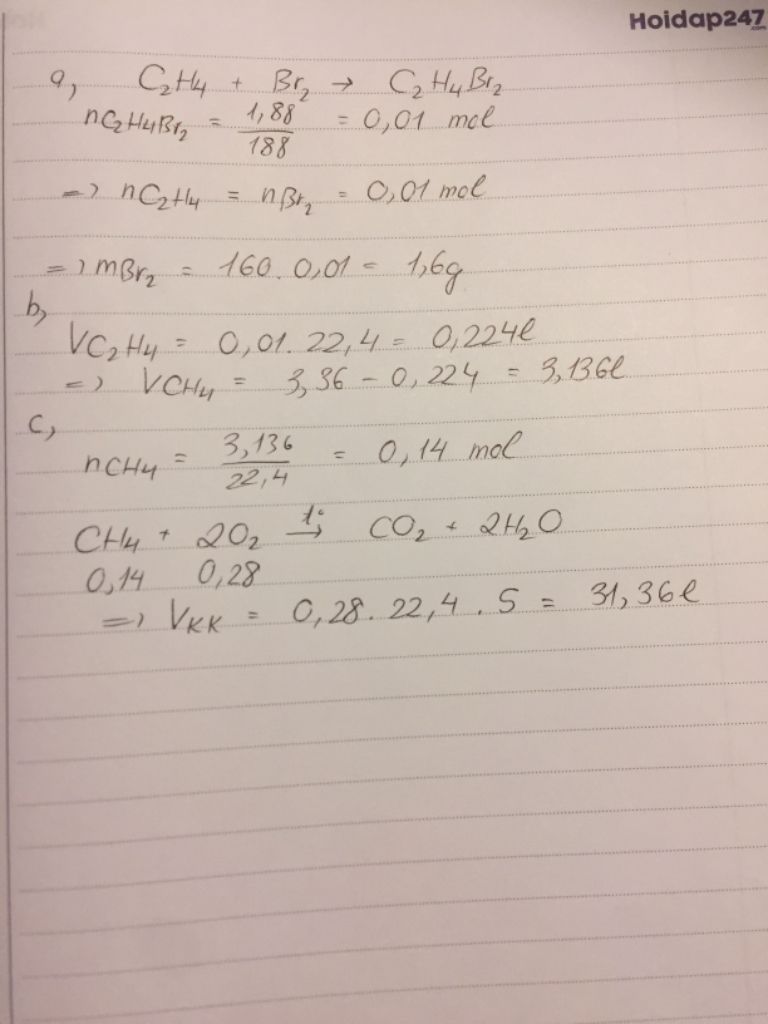 Hoidap247.com
a, C₂H₄ + Br₂ → C₂H₄Br₂
nC₂H₄Br₂ = 1,88/188 = 0,01 mol
=> nC₂H₄ = nBr₂ = 0,01 mol
=> mBr₂ = 160 . 0,01 = 1,6g
b,
VC₂H₄ = 0,01. 22,4 = 0,224l
=> VCH₄ = 3,36 - 0,224 = 3,136l
c,
nCH₄ = 3,136/22,4 = 0,14 mol
CH₄ + 2O₂ t°→ CO₂ + 2H₂O
0,14 0,28
=> VKK = 0,28. 22,4 . 5 = 31,36l